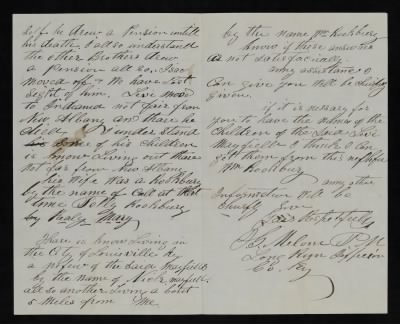 Self he drew a Pension untill
his death, I all so understand
the other Brothers drew
a Pension all so, Isac
moved off & We have lost
sight of him. Live moved
to Indiana not fair from
New Albany and thare he
died I understand
some of his Children
is know Living out thare
not far from New Albany
his Wife was a Rochburg
by the name of Call at that
time Polly Rochburg
by Mary
Thare is know Living in
the City of Louisville Ky
a of the Said Mayfields
by the name of Mayfield
all so another Living a bout
5 Miles from Me
by the name Wm Rochburg
know if these answers
is not Satisfacially
any assistance I
Can give you Will be Chearfuly
given.
if it is nessary for
you to have the Names of the
Children of the Said Live
Mayfield I think I can
get them from this nephew
Wm Rochburg
any other
Information Will be
Given
Respectfuly
Malone P.M.
Long Run Jefferson
Co. Ky